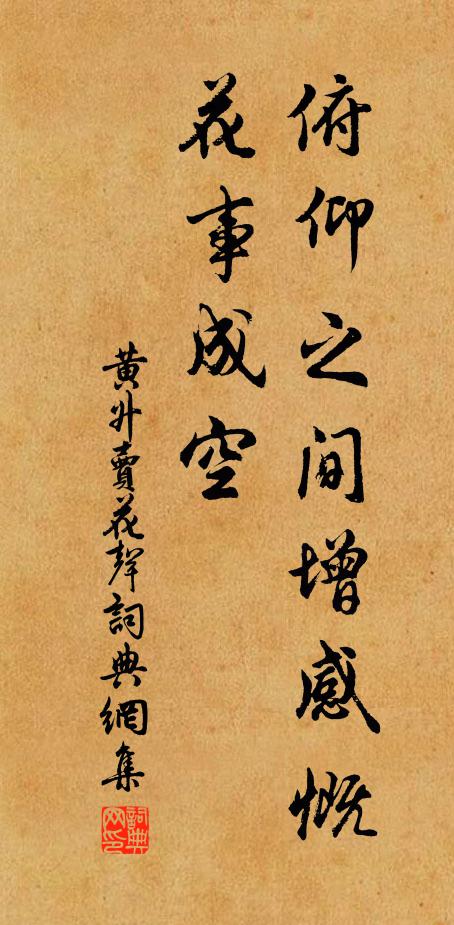 俯仰之间增感慨
花事成空
黄升賣花聲詞典網集
詞典网印